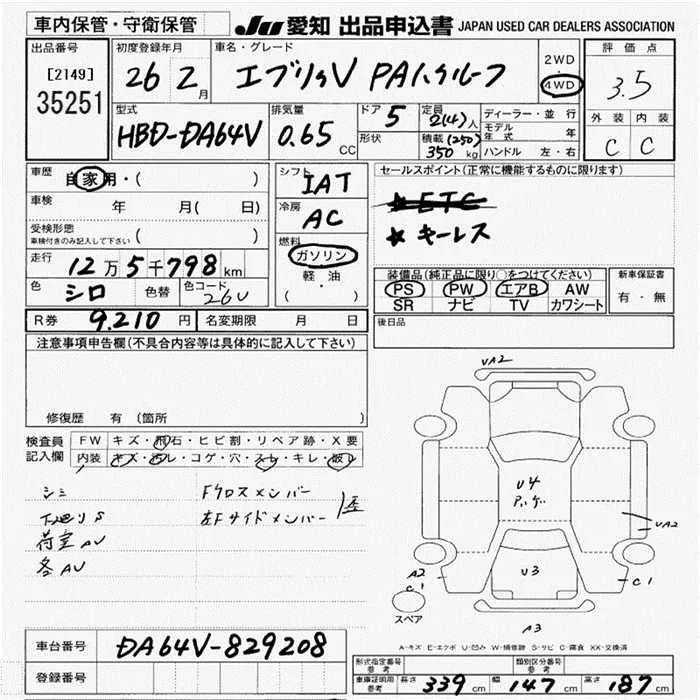 車内保管・守衛保管 JU 愛知 出品申込書 JAPAN USED CAR DEALERS ASSOCIATION
出品番号 初度登録年月 車名・グレード 評価点
[2149] 26 2月 エブリィV PAハイルーフ 2WD・4WD 3.5
35251
型式 排気量 ドア 5 定員 2(4)人 ディーラー・並行 外装 内装
HBD-DA64V 0.65 CC 形状 積載 (250) 350 kg モデル年式 年 C C
ハンドル 左・右
車歴 自家用・( ) シフト IAT セールスポイント(正常に機能するものに限ります)
車検 年 月( 日) 冷房 AC ★ETC
受検形態 ( ) ★キーレス
車検付きのみ記入して下さい
走行 12万5千798km 燃料 ガソリン 軽・油 ( ・ )
色 シロ 色替 色コード 26U
装備品(純正品に限り○をつけてください) 新車保証書
PS PW エアB AW 有・無
SR ナビ TV カワシート
R券 9.210円 名変期限 月 日 後日品
注意事項申告欄(不具合内容等は具体的に記入して下さい)
修復歴 有 (箇所 )
検査員記入欄 FW キズ・飛石・ヒビ割・リペア跡・X要
内装 キズ・汚レ・コゲ・穴・スレ・キレ・
シミ Fクロスメンバー
左Fサイドメンバー
荷室AU
各AU
UA2
U4
U3
UA2
A2
C1
C1
A3
スペア
A-キズ E-エクボ U-凹み W-補修跡 S-サビ C-腐食 XX-交換済
車台番号 DA64V-829208
登録番号
形式指定番号 参考 類別区分番号 参考
車庫証明用 参考 長さ 339cm 幅 147cm 高さ 187cm